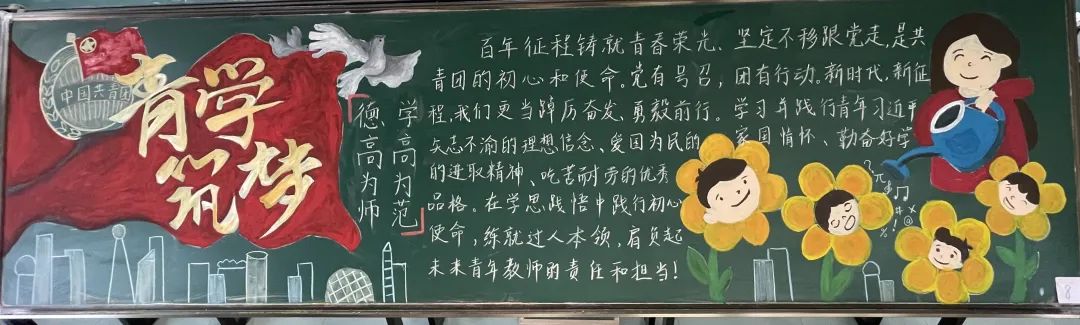 中国共青团
青学
筑梦
学高为范
德高为师
百年征程铸就青春荣光、坚定不移跟党走,是共
青团的初心和使命。党有号召,团有行动。新时代,新征
程,我们更当踔厉奋发、勇毅前行。学习并践行青年习近平
矢志不渝的理想信念、爱国为民的家国情怀、勤奋好学
的进取精神、吃苦耐劳的优秀
品格。在学思践悟中践行初心
使命,练就过人本领,肩负起
未来青年教师的责任和担当!
8